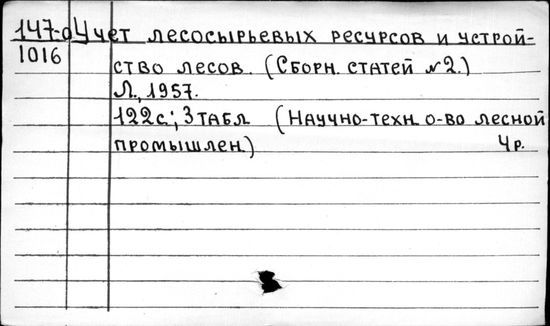 147-о Учет лесосырьевых ресурсов и устрой-
1016
ство лесов. (Сборн. статей №2.)
Л., 1957.
122с.; 3 табл. (Научно-техн. о-во лесной
промышлен.) 4р.